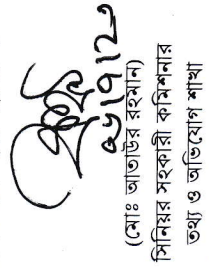 (মোঃ আতাউর রহমান)
সিনিয়র সহকারী কমিশনার
তথ্য ও অভিযোগ শাখা